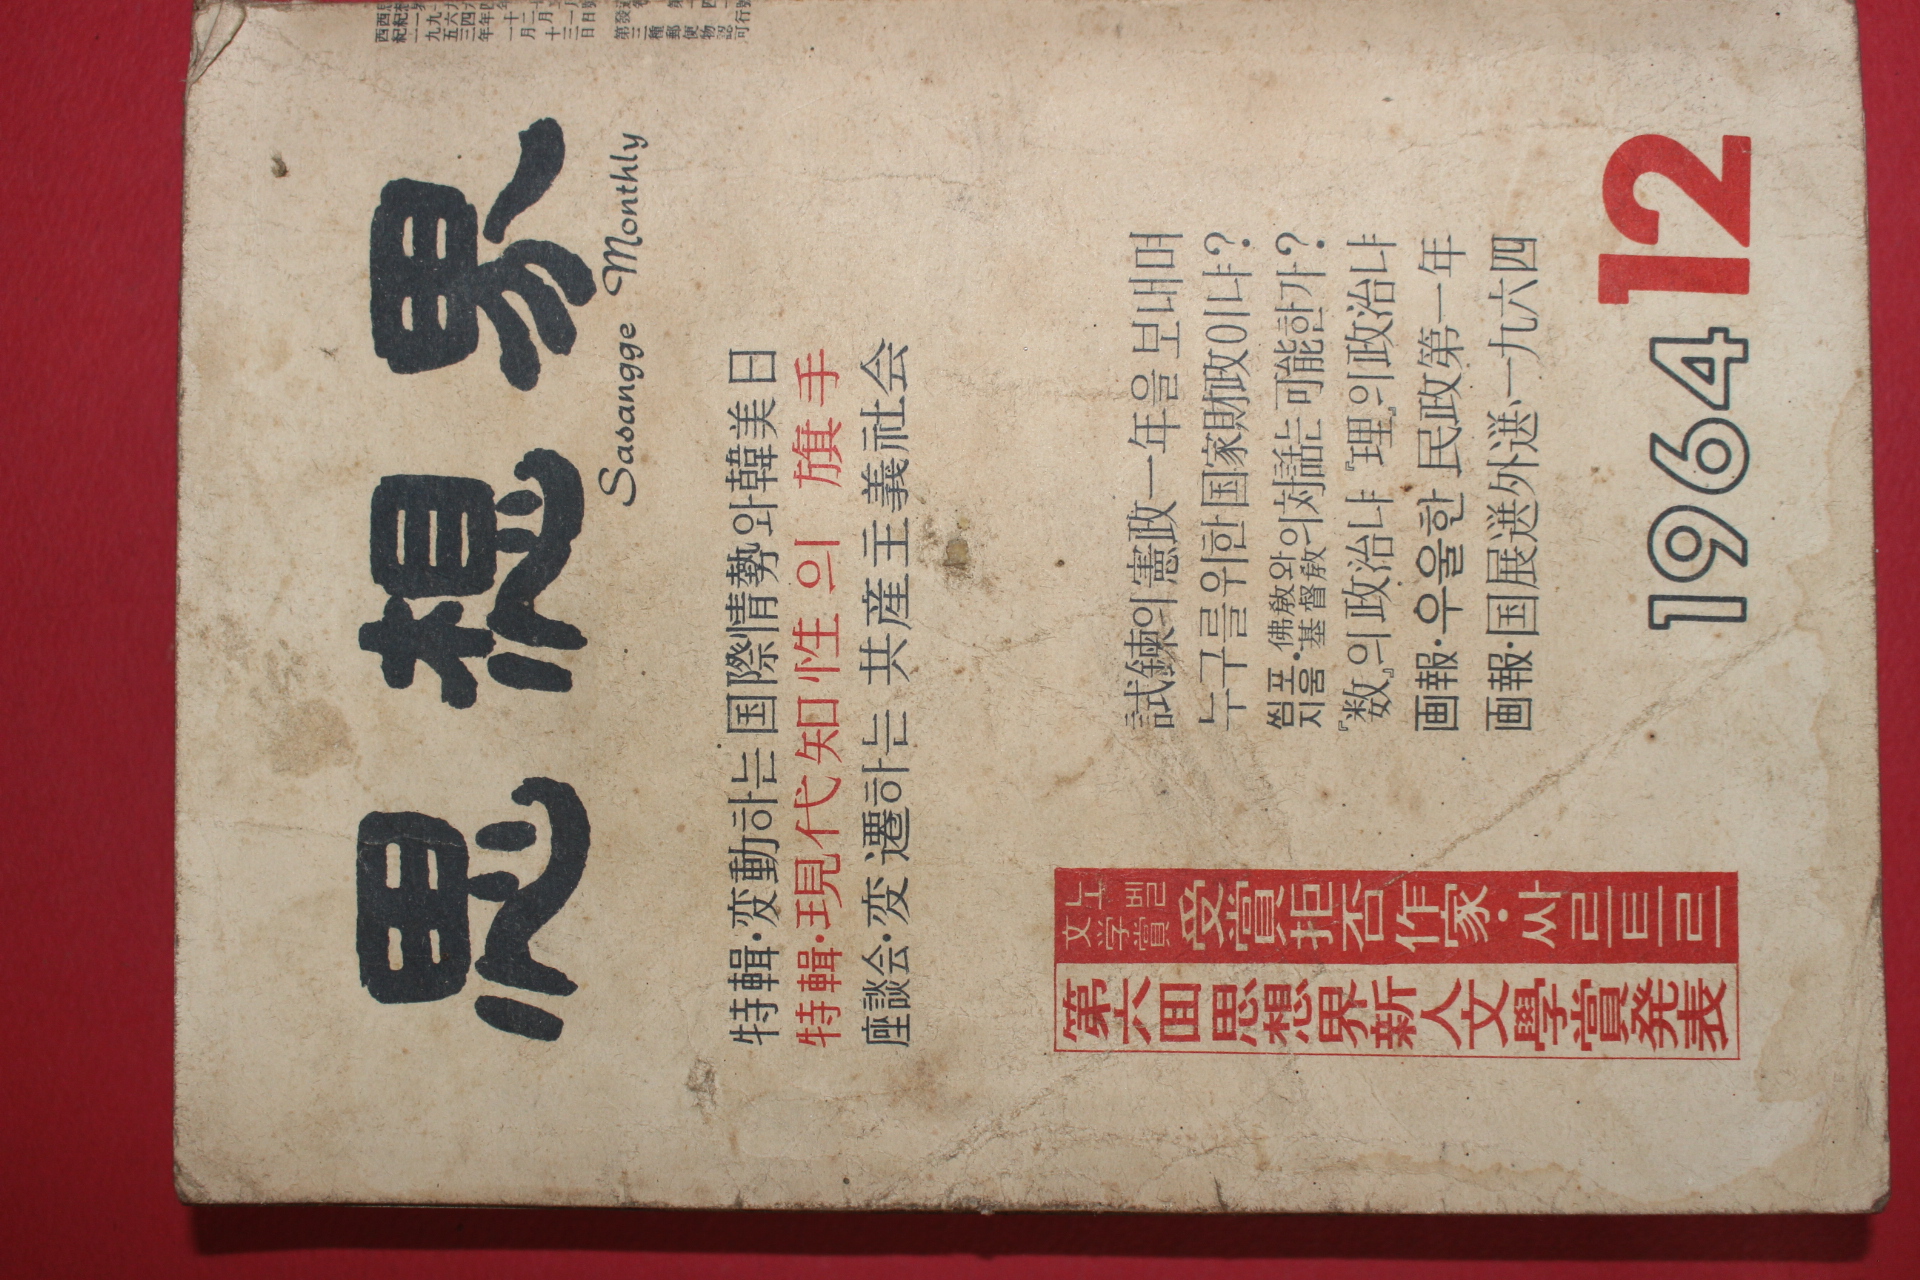 思想界
Sasangge Monthly
特輯·変動하는国際情勢와韓美日
特輯·現代知性의 旗手
座談会·変遷하는 共産主義社会
試鍊의憲政一年을보내며
누구를위한国家財政이냐?
씸포지움·佛教와基督教의対話는可能한가?
『数』의政治냐『理』의政治냐
画報·우울한民政第一年
画報·国展選外選、一九六四
1964 12
노벨文学賞受賞拒否作家·싸르트르
第六回思想界新人文學賞発表
第三種郵便物認可